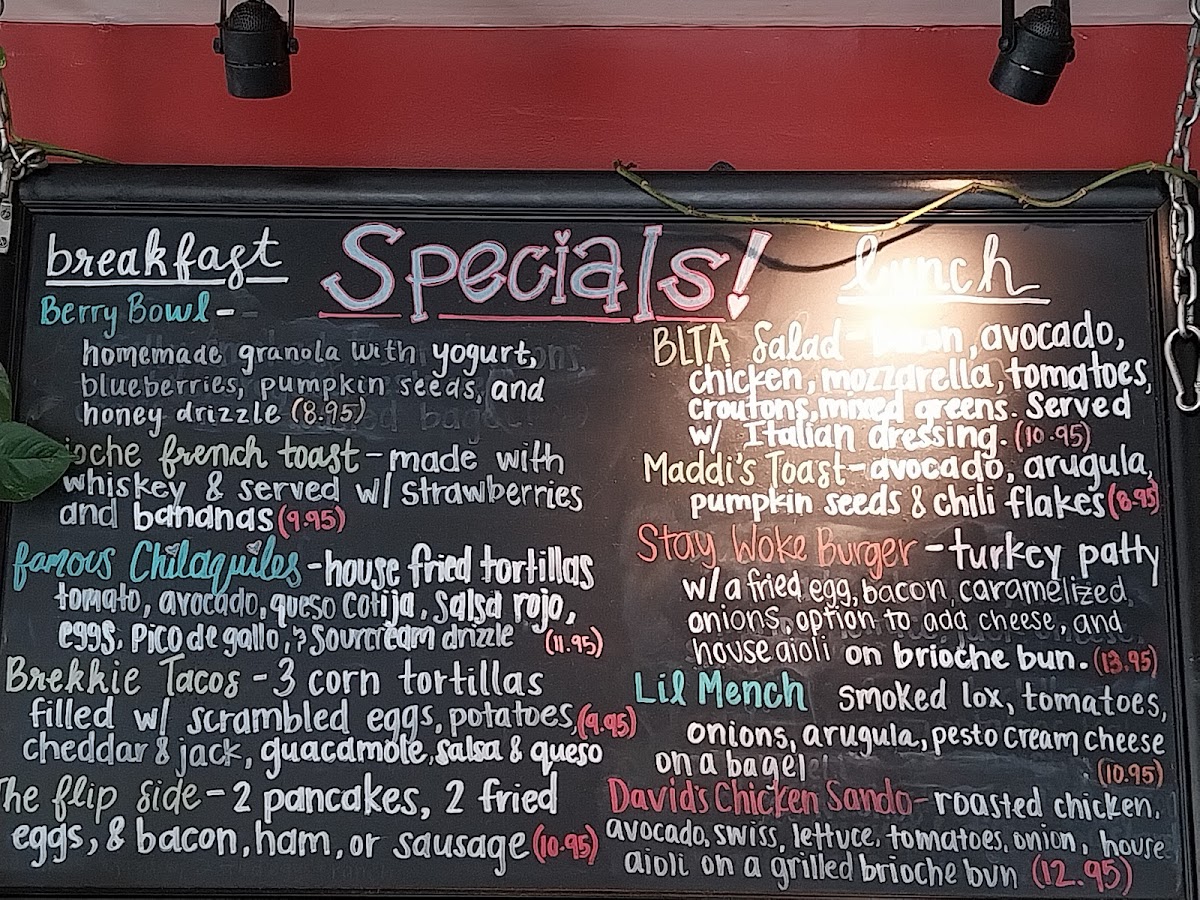 Specials!
breakfast
Berry Bowl -
homemade granola with yogurt,
blueberries, pumpkin seeds, and
honey drizzle (8.95)
french toast - made with
whiskey & served w/ strawberries
and bananas (9.95)
famous Chilaquiles - house fried tortillas
tomato, avocado, queso cotija, salsa rojo,
eggs, Pico de gallo, & Sourcream drizzle (11.95)
Brekkie Tacos - 3 corn tortillas
filled w/ scrambled eggs, potatoes, (9.95)
cheddar & jack, guacamole, salsa & queso
The flip side - 2 pancakes, 2 fried
eggs, & bacon, ham, or sausage (10.95)
lunch
BLTA Salad - bacon, avocado,
chicken, mozzarella, tomatoes,
croutons, mixed greens. Served
w/ Italian dressing. (10.95)
Maddi's Toast - avocado, arugula,
pumpkin seeds & chili flakes (8.95)
Stay Woke Burger - turkey patty
w/ a fried egg, bacon, caramelized
onions, option to add cheese, and
house aioli on brioche bun. (13.95)
Lil Mench smoked lox, tomatoes,
onions, arugula, pesto cream cheese
on a bagel (10.95)
David's Chicken Sando - roasted chicken,
avocado, swiss, lettuce, tomatoes, onion, house
aioli on a grilled brioche bun (12.95)